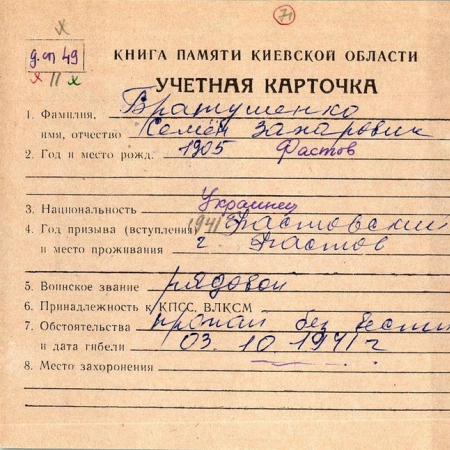 х
71
д.оп 49
х II х
КНИГА ПАМЯТИ КИЕВСКОЙ ОБЛАСТИ
УЧЕТНАЯ КАРТОЧКА
1. Фамилия, Братушенко
имя, отчество Семён Захарович
2. Год и место рожд. 1905 Фастов
3. Национальность Украинец
4. Год призыва (вступления) 1941 Фастовский
и место проживания г Фастов
5. Воинское звание рядовой
6. Принадлежность к КПСС, ВЛКСМ
7. Обстоятельства пропал без вести
и дата гибели 03. 10 1941 г
8. Место захоронения